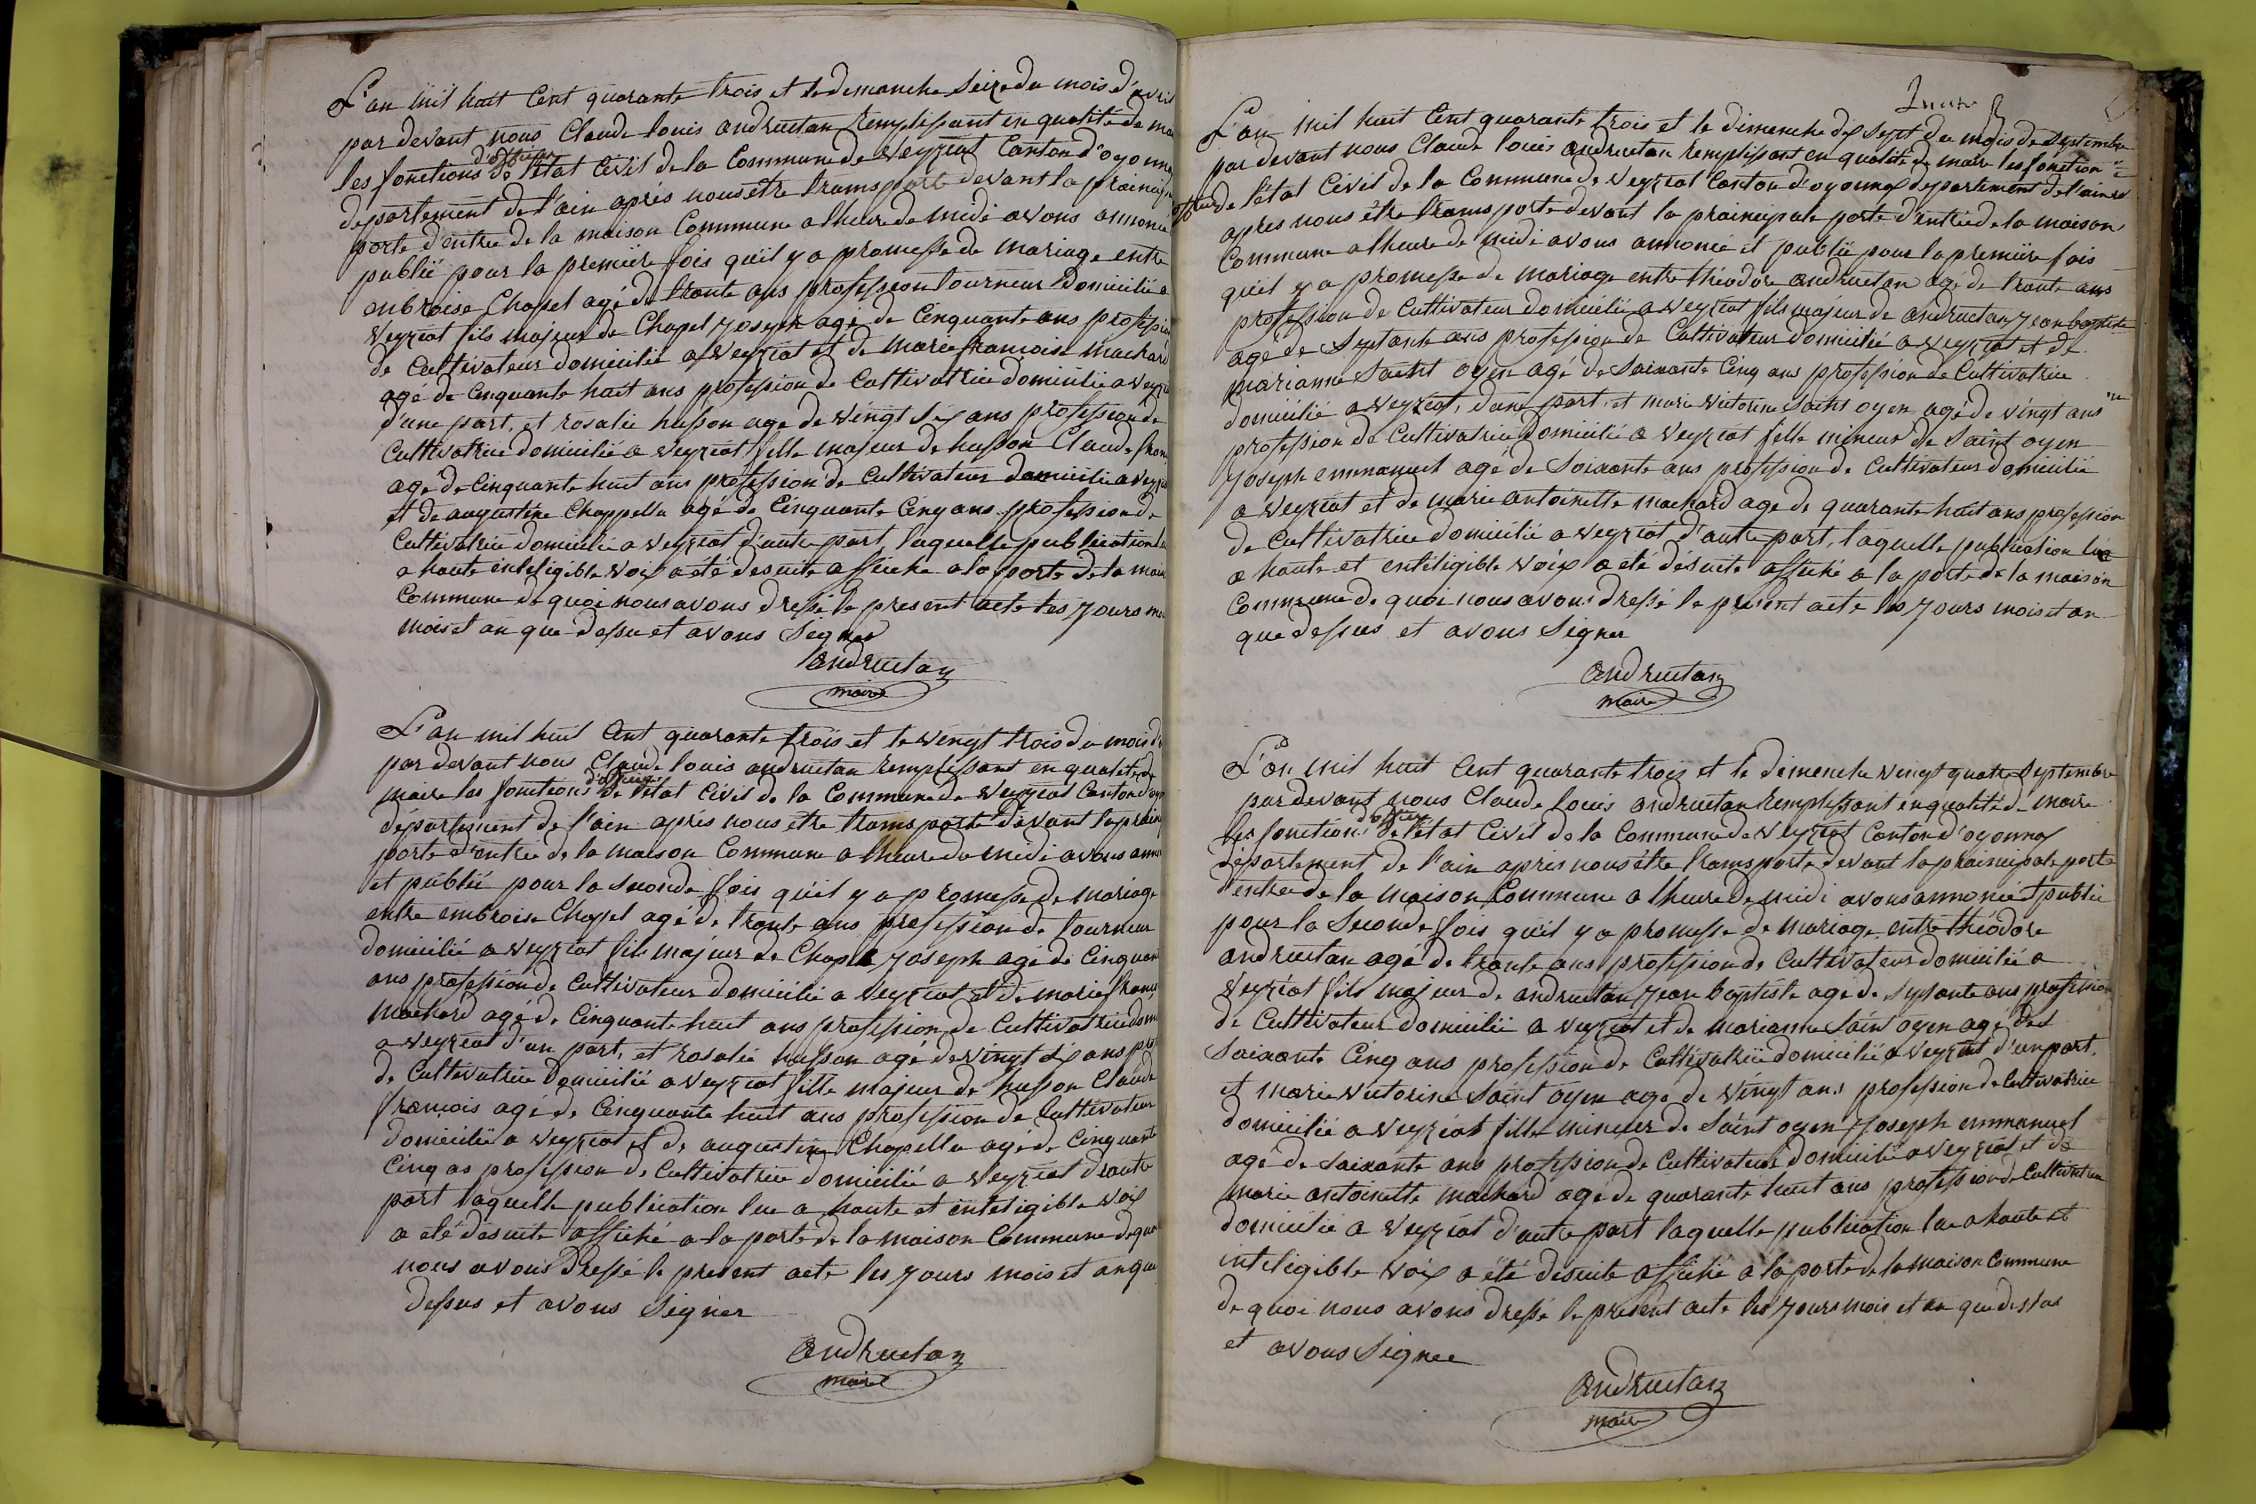 L'an mil huit Cent quarante trois et le demanche Seize du mois d'avril
par devant nous Claude louis andruetan Remplissant en qualité de ma
les fonctions d'officier de l'état Civil de la Commune de veyziat Canton d'oyonna
departement de l'ain après nous être transporté devant la prainci
porte d'entrée de la maison Commune a lheure de midi avons annoncé
publié pour la premiere fois qu'il y a promesse de mariage entre
enbroise Chapel agé de trante ans profession tourneur Domicilié a
veyziat fils majeur de Chapel Joseph agé de Cinquante ans profession
de Cultivateur domicilié a veyziat et de marie francoise machard
agé de Cinquante huit ans profession de Cultivatrice domicilié a veyzia
d'une part, et rosalie husson age de vingt six ans profession de
Cultivatrice domicilié a veyziat fille majeur de husson Claude fran
age de Cinquante huit ans profession de Cultivateur domicilié a veyzia
et de augustine Chappellu agé de Cinquante Cinq ans profession de
Cultivatrice domicilié a veyziat d'autre part laquelle publication
a haute inteligible voix a été desuite affiché a la porte de la mais
Commune de quoi nous avons dressé le present acte les jours
mois et an que dessu et avons Signer
andruetan
maire
L'an mil huit Cent quarante trois et le vingt trois du mois d'a
par devant nous Claude louis andruetan Remplissant en qualité de
maire les fonctions d'officier de l'état Civil de la Commune de veyziat Canton d'oyo
departement de l'ain apres nous être transporté devant la prain
porte d'entrée de la maison Commune a lheure de midi avons anno
et publié pour la seconde fois qu'il y a promesse de mariage
entre embroise Chapel agé de trante ans profession de tourneur
domicilié a veyziat fils majeur de Chaple Joseph agé de Cinquan
ans profession de Cultivateur domicilié a veyziat et de marie franç
Machard agé de Cinquante huit ans profession de Cultivatrice dom
a veyziat d'un part, et rosalie husson agé de vingt six ans pro
de Cultivatrice domicilié a veyziat fille majeur de husson Claude
françois agé de Cinquante huit ans profession de Cultivateur
domicilié a veyziat et de augustine Chapellu agé de Cinquante
Cinq as profession de Cultivatrice domicilié a veyziat d'autre
part laquelle publication lue a haute et inteligible voix
a été desuite affiché a la porte de la maison Commune de quoi
nous avons dressé le present acte les jours mois et an que
dessus et avons Signer
andruetan
maire
L'an mil huit Cent quarante trois et le dimenche dix sept du mois de Septembre
par devant nous Claude louis andruetan Remplissant en qualité de maire les fonction d'
officier de l'état Civil de la Commune de veyziat Canton d'oyonnax departement de l'ain
apres nous être transporté devant la praincipale porte d'entrée de la maison
Commune a lheure de midi avons annoncé et publié pour la premiere fois
qu'il y a promesse de mariage entre théodore andruetan agé de trante ans
profession de Cultivateur domicilié a veyziat fils majeur de andruetan Jean baptiste
agé de Septante ans profession de Cultivateur domicilié a veyziat et de
marianne Saint oyen agé de Soixante Cinq ans profession de Cultivatrice
domicilié a veyziat, d'une part, et marie victorine Saint oyen agé de vingt ans
profession de Cultivatrice domicilié a veyziat fille mineur de Saint oyen
Joseph emmanuel agé de Soixante ans profession de Cultivateur domicilié
a veyziat et de marie antoinette machard age de quarante huit ans profession
de Cultivatrice domicilié a veyziat d'autre part, laquelle publication lue
a haute et entiligible voix a été désuite affiché a la porte de la maison
Commune de quoi nous avons dressé le present acte les jours mois et an
que dessus et avons Signer
andruetan
maire
L'an mil huit Cent quarante trois et le dimenche vingt quatre Septembre
par devant nous Claude Louis andruetan Remplissant en qualité de maire
les fonctions d'officier de l'état Civil de la Commune de veyziat Canton d'oyonnax
département de l'ain apres nous être transporté devant la praincipale porte
d'entrée de la maison Commune a lheure de midi avons annoncé et publié
pour la Seconde fois qu'il y a promesse de mariage entre théodore
andruetan agé de trante ans profession de Cultivateur domicilié a
Veyziat fils majeur de andruetan Jean baptiste agé de Septante ans profession
de Cultivateur domicilié a veyziat et de marianne Saint oyen agé de
Soixante Cinq ans profession de Cultivatrice domicilié a veyziat d'un part,
et marie victorine Saint oyen agé de vingt ans profession de Cultivatrice
domicilié a veyziat fille mineur de Saint oyen Joseph emmanuel
agé de soixante ans profession de Cultivateur domicilié a veyziat et de
marie antoinette machard agé de quarante huit ans profession de Cultivatrice
domicilié a veyziat d'autre part laquelle publication lue a haute et
intiligible voix a été desuite affiché a la porte de la maison Commune
de quoi nous avons dressé le present acte les jours mois et an que dessus
et avons Signer
andruetan
maire